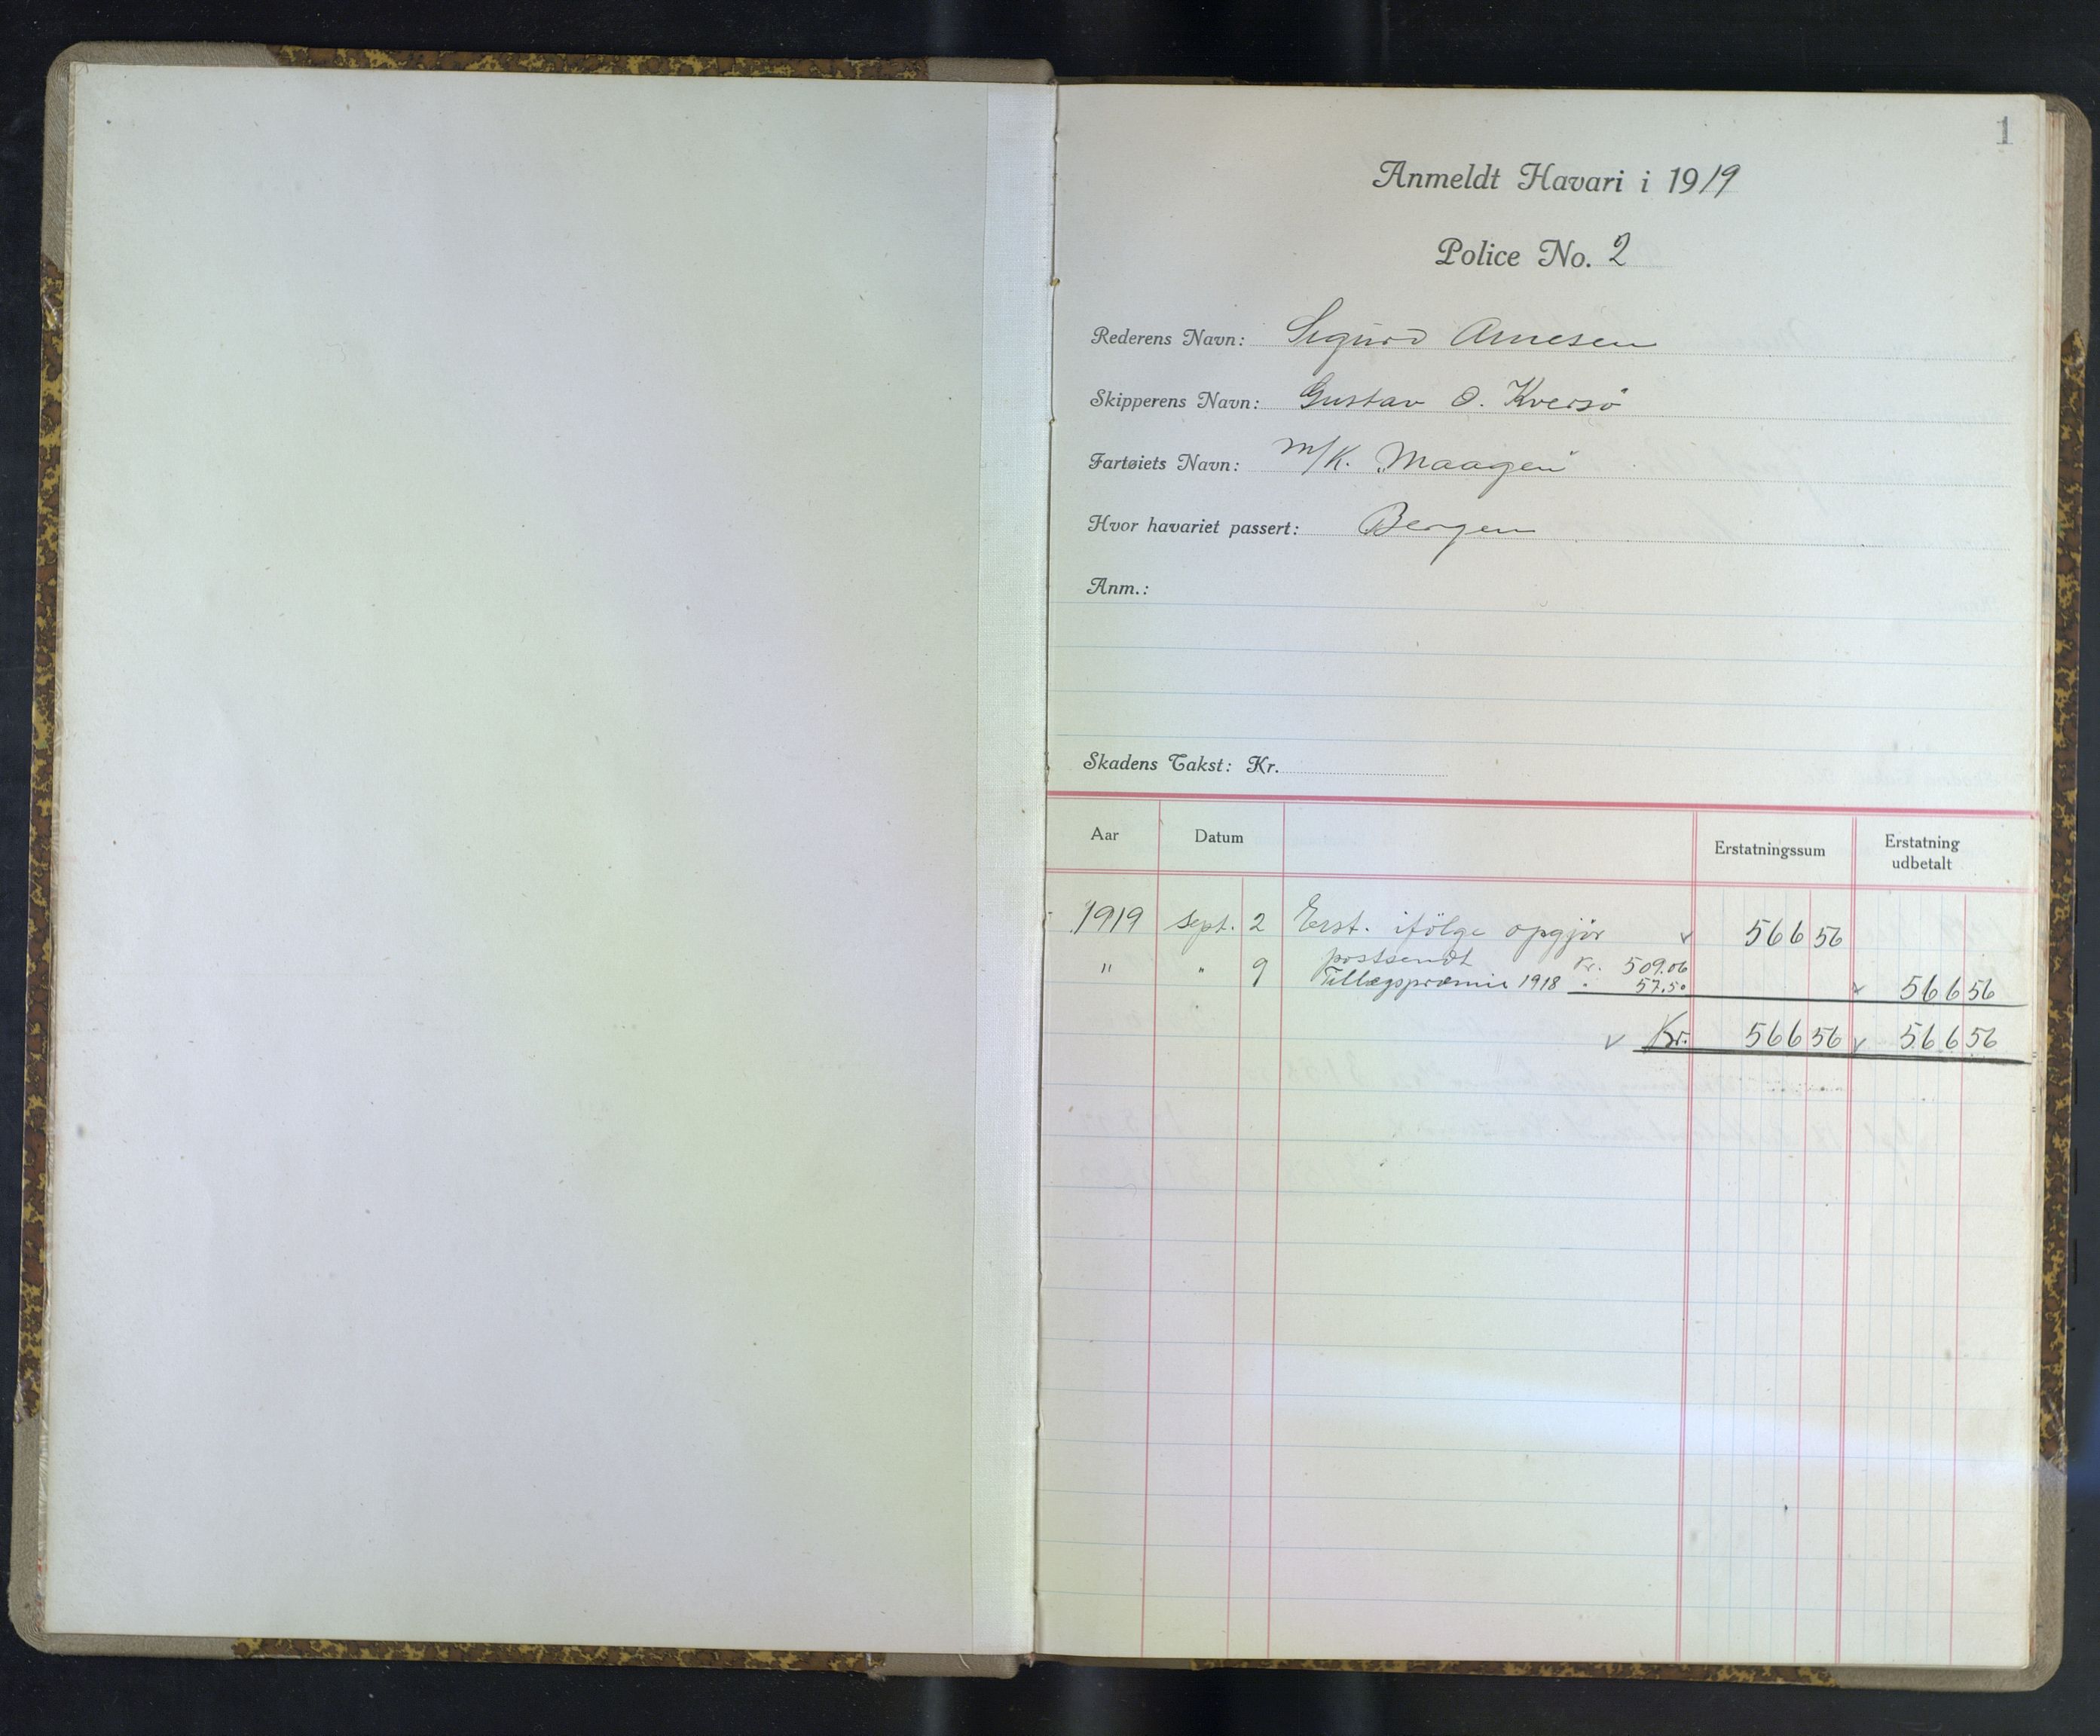 1
Anmeldt Havari i 1919
Police No. 2
Rederens Navn: Sigurd Arnesen
Skipperens Navn: Gustav O. Kversö
Fartøiets Navn: M/K. "Maagen"
Hvor havariet passert: Bergen
Anm.:
Skadens Takst: Kr.
Aar Datum Erstatningssum Erstatning udbetalt
1919 Sept. 2 Erst. ifölge opgjör 566 56
" " 9 postsendt Kr. 509.06
Tillægspræmie 1918 " 57.50 566 56
Kr. 566 56 566 56